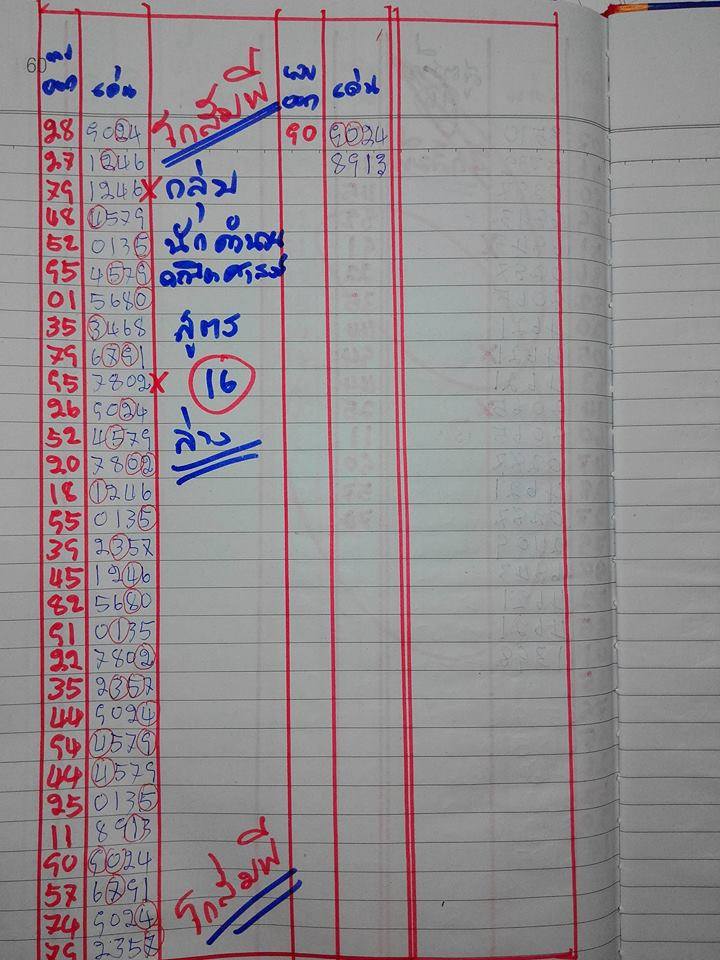 60
ผล ออก เด่น จุกสีมพี ผล ออก เด่น
28 9024 90 9024
27 1246 8913
79 1246 x กลุ่ม
48 4579
52 0135 นักคำนวน
95 4579 คณิตศาสตร์
01 5680
35 3468 สูตร
79 6791
95 7802 x 16
26 9024
52 4579 ล่าง
20 7802
18 1246
95 0135
39 2357
45 1246
82 5680
91 0135
22 7802
35 2357
44 9024
94 4579
44 4579
25 0135
11 8913
90 9024
57 6791 จุกสีมพี
74 9024
79 2357